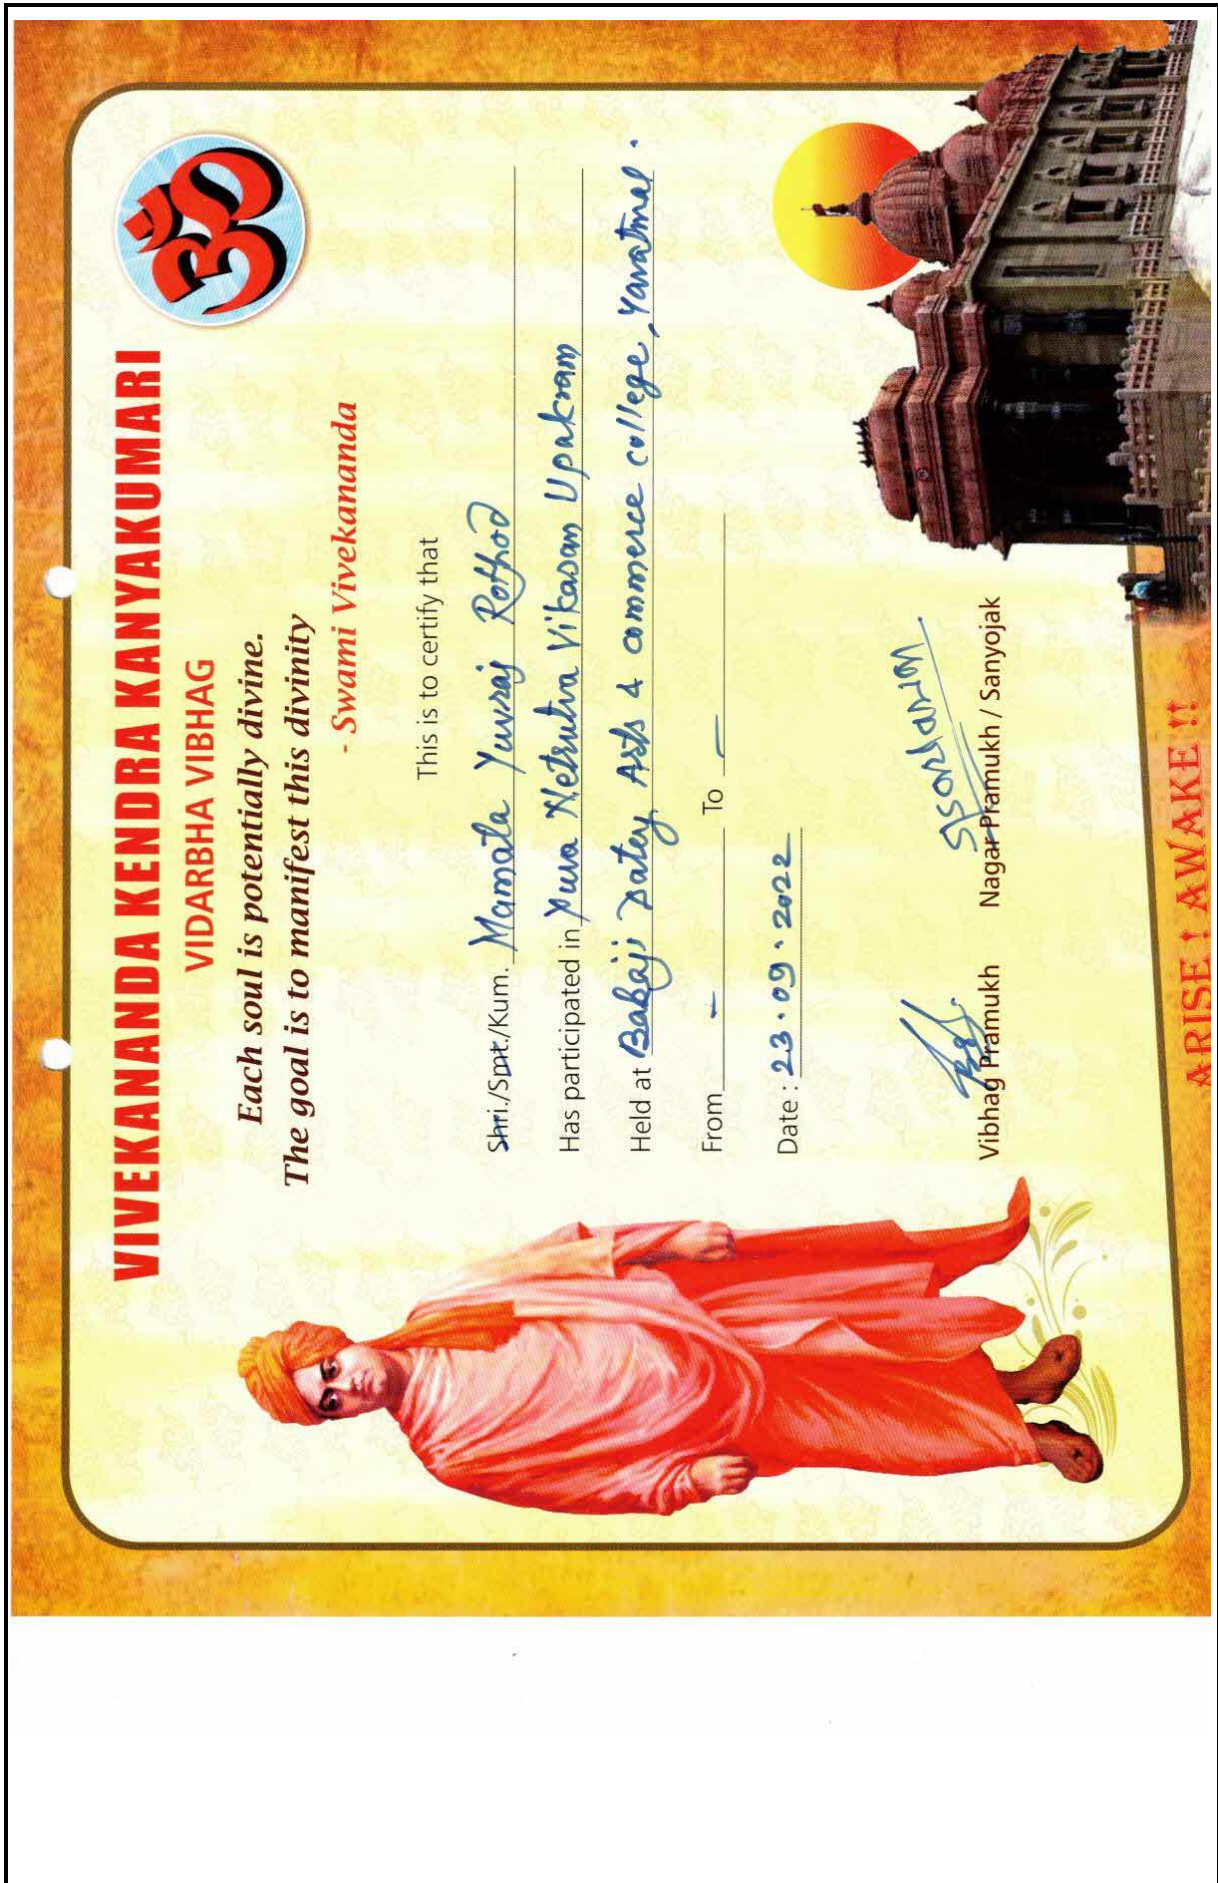 ॐ
VIVEKANANDA KENDRA KANYAKUMARI
VIDARBHA VIBHAG
Each soul is potentially divine.
The goal is to manifest this divinity
- Swami Vivekananda
This is to certify that
Shri./Smt./Kum. Mamata Yuvraj Rathod
Has participated in Yuva Netrutva Vikasan Upakram
Held at Babaji Datey Arts & commerce college, Yavatmal.
From — To —
Date : 23.09.2022
Vibhag Pramukh Nagar Pramukh / Sanyojak
ARISE ! AWAKE !!